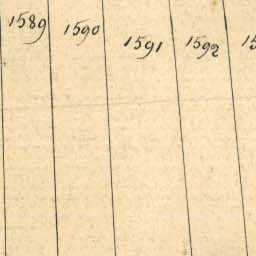 1589 1590 1591 1592